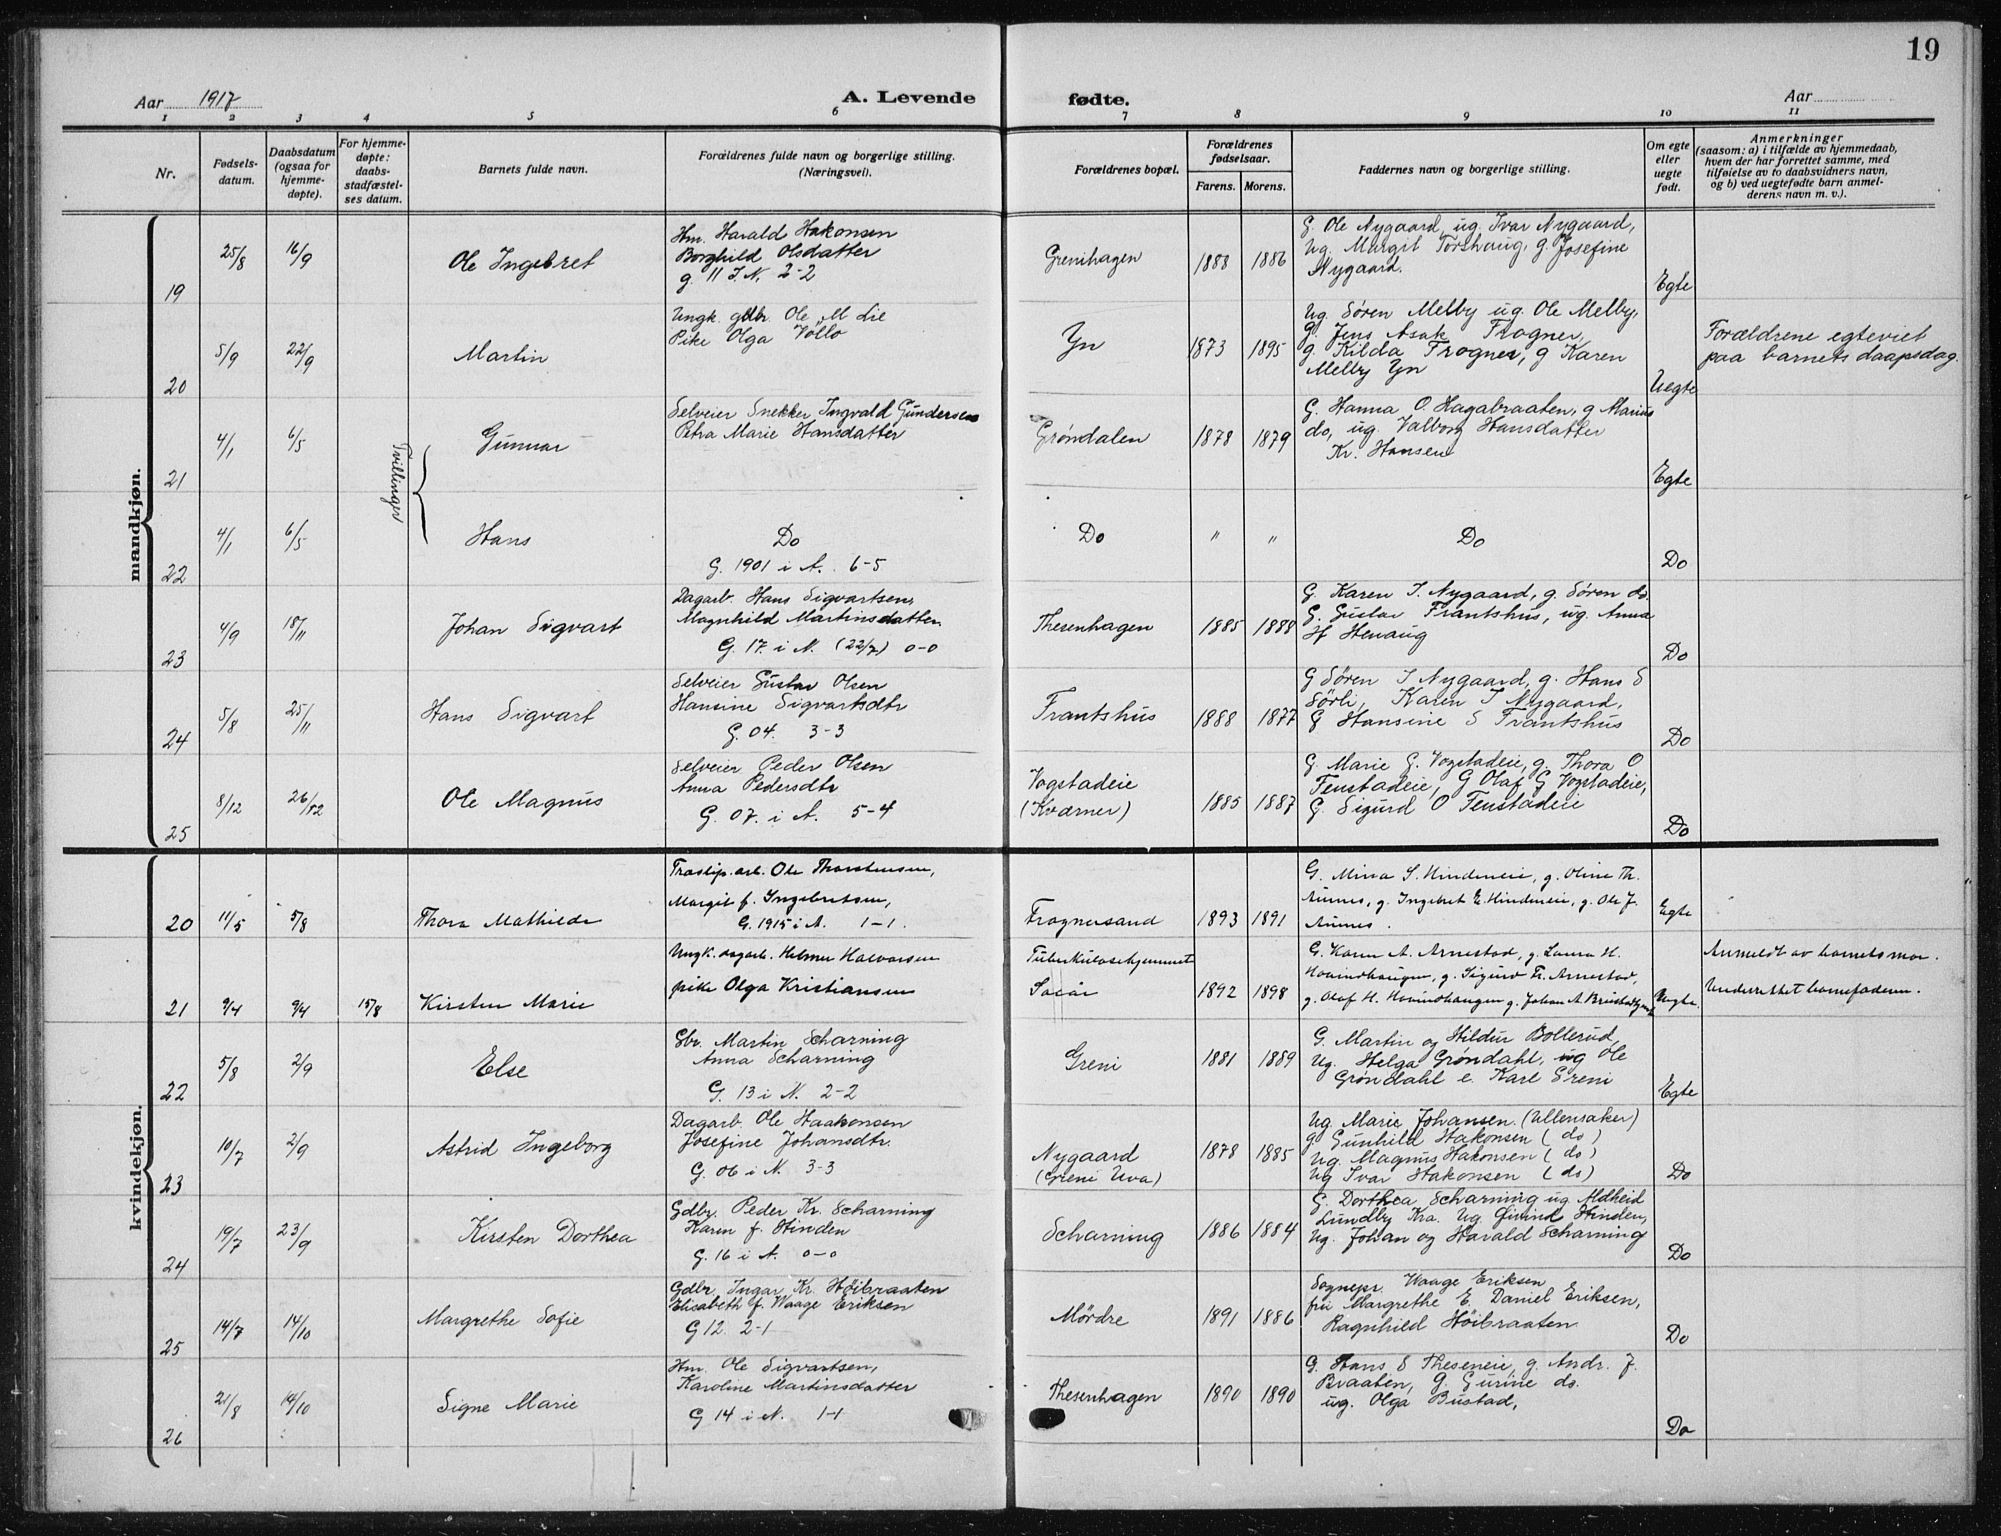 19
Aar 1917
A. Levende
fødte.
Aar
1 2 3 4 5 6 7 8 9 10 11
Nr.
Fødsels-
datum.
Daabsdatum
(ogsaa for
hjemme-
døpte).
For hjemme-
døpte:
daabs-
stadfæstel-
ses datum.
Barnets fulde navn.
Forældrenes fulde navn og borgerlige stilling.
(Næringsvei).
Forældrenes bopæl.
Forældrenes
fødselsaar.
Farens. Morens.
Faddernes navn og borgerlig stilling.
Om egte
eller
uegte
født.
Anmerkninger
(saasom: a) i tilfælde av hjemmedaab,
hvem der har forrettet samme, med
tilføielse av to daabsvidners navn,
og b) ved uegtefødte barn anmel-
derens navn m. v.).
mandkjøn.
19 25/8 16/9 Ole Ingebret
Hm. Harald Hakonsen
Borghild Olsdatter
g. 11 I. N. 2-2
Grenihagen 1888 1886
G. Ole Nygaard, ug. Ivar Nygaard,
Ug. Margit Torshaug, g. Josefine
Nygaard.
Egte
20 5/9 22/9 Martin
Ungk. gdbr Ole M Lie
Pike Olga Vollo
Yn 1873 1895
Ug. Søren Melby ug. Ole Melby,
g. Jens Asak Frogner,
g. Kilda Frogner, g Karen
Melby Yn
Uegte
Forældrene egteviet
paa barnets daapsdag.
21 4/1 6/5 Gunnar
Tvillinger
Selveier Snekker Ingvald Gundersen
Petra Marie Hansdatter
Grøndalen 1878 1879
G. Hanna O. Hagabraaten, g Marius
do, ug. Valborg Hansdatter
Kr. Hansen
Egte
22 4/1 6/5 Hans
Do
G. 1901 i A. 6-5
Do " "
Do
Do
23 4/9 18/11 Johan Sigvart
Dagarb. Hans Sigvartsen,
Magnhild Martinsdatter
G. 17. i N. (22/7) 0-0
Thesenhagen 1885 1888
G. Karen I. Nygaard, g. Søren do.
G. Gustav Frantshus, ug. Anna
H Henaug
Do
24 5/8 25/11 Hans Sigvart
Selveier Gustav Olsen
Hansine Sigvartsdtr
G. 04. 3-3
Frantshus 1888 1877
G Søren I Nygaard, g. Hans S
Sørli, Karen I Nygaard,
G Hansine S Frantshus
Do
25 8/12 26/12 Ole Magnus
Selveier Peder Olsen
Anna Pedersdtr
G. 07. i A. 5-4
Vogstadeie
(Kværner) 1885 1887
G. Marie G. Vogstadeie, g. Thora O
Tenstadeie, G Olaf G Vogstadeie,
G. Sigurd O Tenstadeie
Do
kvindekjøn.
20 11/5 5/8 Thora Mathilde
Træslip. arb. Ole Thorstensen,
Margit f. Ingebretsen,
G. 1915 i A. 1-1.
Frognersand 1893 1891
G. Mina S. Hindeneie, g. Oline Th.
Aurnes, g. Ingebret E. Hindeneie, g. Ole J.
Aurnes.
Egte
21 9/4 9/4 15/8 Kirsten Marie
Ungk. dagarb. Helmer Halvorsen
pike Olga Kristiansen
Tuberkulosehjemmet
1892 1898
G. Karen A. Arnestad, g. Laura H.
Hovindhaugen, g. Sigurd Fr. Arnestad,
g. Olaf H. Hovindhaugen g. Johan A
Uegte.
Anmeldt av barnets mor.
Underrettet barnefaderen.
22 5/8 2/9 Else
Gbr. Martin Scharning
Anna Scharning
G. 13 i N. 2-2
Greni 1881 1889
G. Martin og Hildur Bolterud,
Ug. Helga Grøndahl, ug Ole
Grøndahl e. Karl Greni
Egte
23 10/7 2/9 Astrid Ingeborg
Dagarb. Ole Haakonsen
Josefine Johansdtr.
G. 06 i N. 3-3
Nygaard
(Greni Uva) 1878 1885
Ug. Marie Johansen. (Ullensaker)
g. Gunhild Hakonsen (do)
Ug. Magnus Hakonsen (do)
Ug Ivar Hakonsen (do)
Do
24 19/7 23/9 Kirsten Dorthea
Gdbr. Peder Kr. Scharning
Karen f. Hinden
G. 16 i A. 0-0
Scharning 1886 1884
G. Dorthea Scharning ug Aldheid
Lundby Kra. Ug. Øivind Hinden,
Ug. Johan og Harald Scharning
Do
25 14/7 14/10 Margrethe Sofie
Gdbr. Ingar Kr. Høibraaten
Elisabeth f. Waage Eriksen
G 12. 2-1
Mørdre 1891 1886
Sognepr. Waage Eriksen
fru Margrethe E. Daniel Eriksen,
Ragnhild Høibraaten
Do
26 21/8 14/10 Signe Marie
Hm. Ole Sigvartsen,
Karoline Martinsdatter
G 14 i N. 1-1
Thesenhagen 1890 1890
G. Hans S Theseneie, g. Andr. J.
Braaten, G. Gurine do.
ug. Olga Bustad,
Do